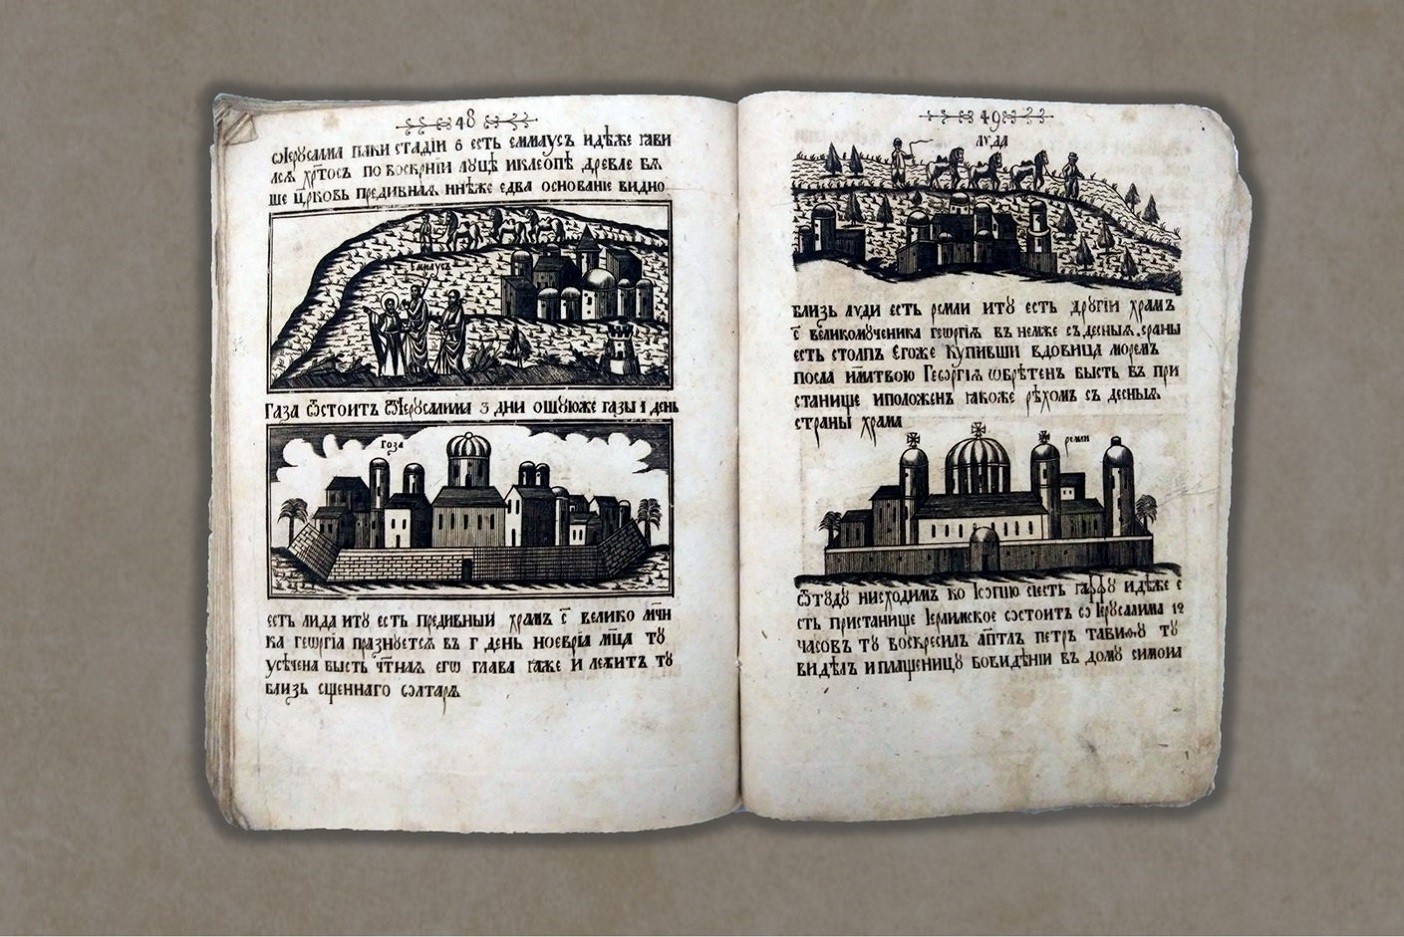 48
ѿІерусалма паки стадіи 6 есть еммаусъ идѣже ꙗви
лсѧ хр҃тосъ по воскр҃нїи луцѣ иклеопѣ древле бѧ
ше цр҃ковь предивнаѧ нн҃ѣже едва основаніе видно
Еммаусъ
Газа ѿстоитъ ѿІерусалима 3 дни ошуюже газы 1 день
Гоза
есть лида иту есть предивныи храмъ с҃ велико мч҃н
ка георгіа празнуетсѧ въ г день ноеврїа мц҃а ту
усѣчена бысть чт҃наѧ егѡ глава ꙗже и лежитъ ту
близь сщ҃еннаго ѡлтарѧ
49
луда
близь луди есть ремли иту есть другіи храмъ
с҃ великомученика георгїѧ въ немже съ десныѧ сраны
есть столпъ Егоже купивши вдовица моремъ
посла им҃лтвою Георгїѧ ѡбрѣтенъ бысть въ при
станище иположенъ ꙗкоже рѣхомъ съ десныѧ
страны храма
ремли
ѿтуду нисходимъ ко Іѡпію сіесть гаффу идѣже е
сть пристанище Іерлимское ѿстоитъ ѿ Іерусалима 12
часовъ ту воскресилъ ап҃тлъ петръ тавиѳу ту
видѣлъ иплащеницу вовидѣніи въ дому симона